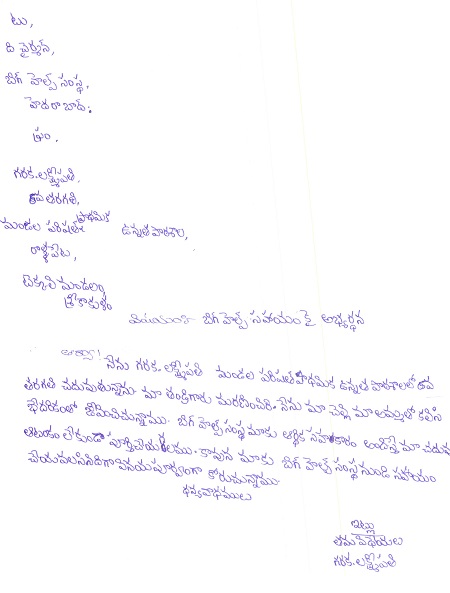 టు,
ది చైర్మన్,
బిగ్ హెల్ప్ సంస్థ,
హైదరాబాద్.
ఫ్రం.
గరక.లక్ష్మీపతి,
తరగతి,
మండల పరిషత్ ప్రాథమిక ఉన్నత పాఠశాల,
రాళ్ళపేట,
టెక్కలి మండలం,
శ్రీకాకుళం
విషయం:- బిగ్ హెల్ప్ సహాయం కై అభ్యర్థన
ఆర్యా! నేను గరక.లక్ష్మీపతి మండల పరిషత్ ప్రాథమిక ఉన్నత పాఠశాలలో
తరగతి చదువుతున్నాను. మా తండ్రిగారు మరణించిరి. నేను మా చెల్లి మా అమ్మతో కలిసి
జీవించుచున్నాము. బిగ్ హెల్ప్ సంస్థ మాకు ఆర్థిక సహకారం అందిస్తే మా చదువు
ఆటంకం లేకుండా పూర్తిచేయగలము. కావున మాకు బిగ్ హెల్ప్ సంస్థ నుండి సహాయం
చేయవలసినదిగా వినయపూర్వంగా కోరుచున్నాము.
ధన్యవాధములు
ఇట్లు
తమ విధేయులు
గరక.లక్ష్మీపతి